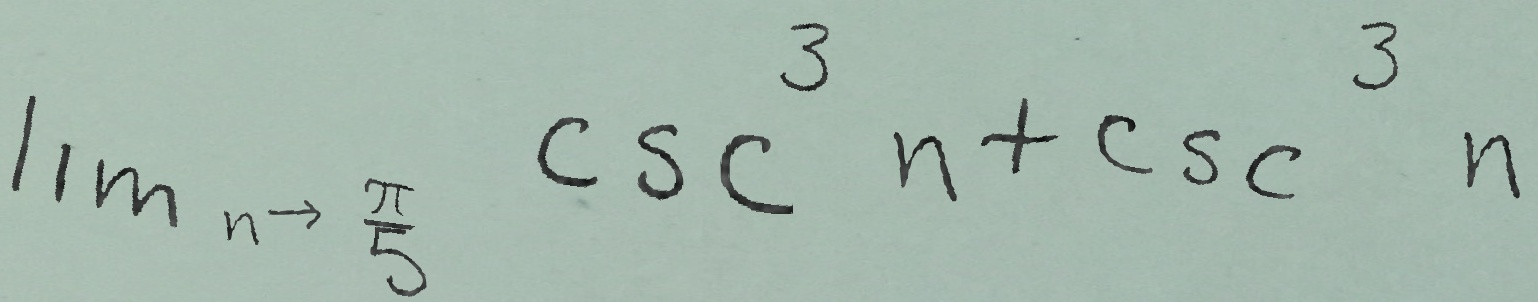 \lim_{n \to \frac{\pi}{5}} \csc^3 n + \csc^3 n